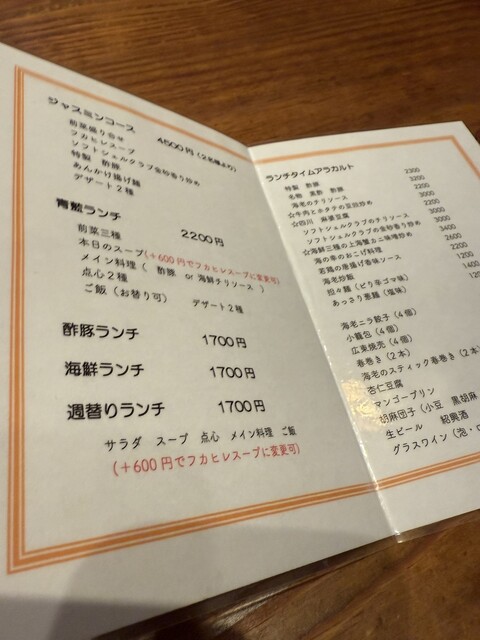 ジャスミンコース 4500円(2名様より)
前菜盛り合せ
フカヒレスープ
ソフトシェルクラブ金砂香り炒め
特製 酢豚
あんかけ揚げ麺
デザート2種
青鷲ランチ 2200円
前菜三種
本日のスープ(+600円でフカヒレスープに変更可)
メイン料理( 酢豚 or 海鮮チリソース )
点心2種
ご飯(お替り可) デザート2種
酢豚ランチ 1700円
海鮮ランチ 1700円
週替りランチ 1700円
サラダ スープ 点心 メイン料理 ご飯
(+600円でフカヒレスープに変更可)
ランチタイムアラカルト
特製 酢豚 2200
名物 黒酢 酢豚 3200
海老のチリソース 2200
☆牛肉とホタテの豆豉炒め 3000
☆四川 麻婆豆腐 2200
ソフトシェルクラブのチリソース 3000
ソフトシェルクラブの金砂香り炒め 3400
☆海鮮三種の上海蟹カニ味噌炒め 2600
海の幸のおこげ料理 2200
若鶏の唐揚げ香味ソース 1200
海老炒飯 1400
担々麺(ピリ辛ゴマ味)
あっさり葱麺(塩味)
海老ニラ餃子(4個)
小籠包(4個)
広東焼売(4個)
春巻き(2本)
海老のスティック春巻き(2本)
杏仁豆腐
マンゴープリン
胡麻団子(小豆 黒胡麻
生ビール 紹興酒
グラスワイン(泡・